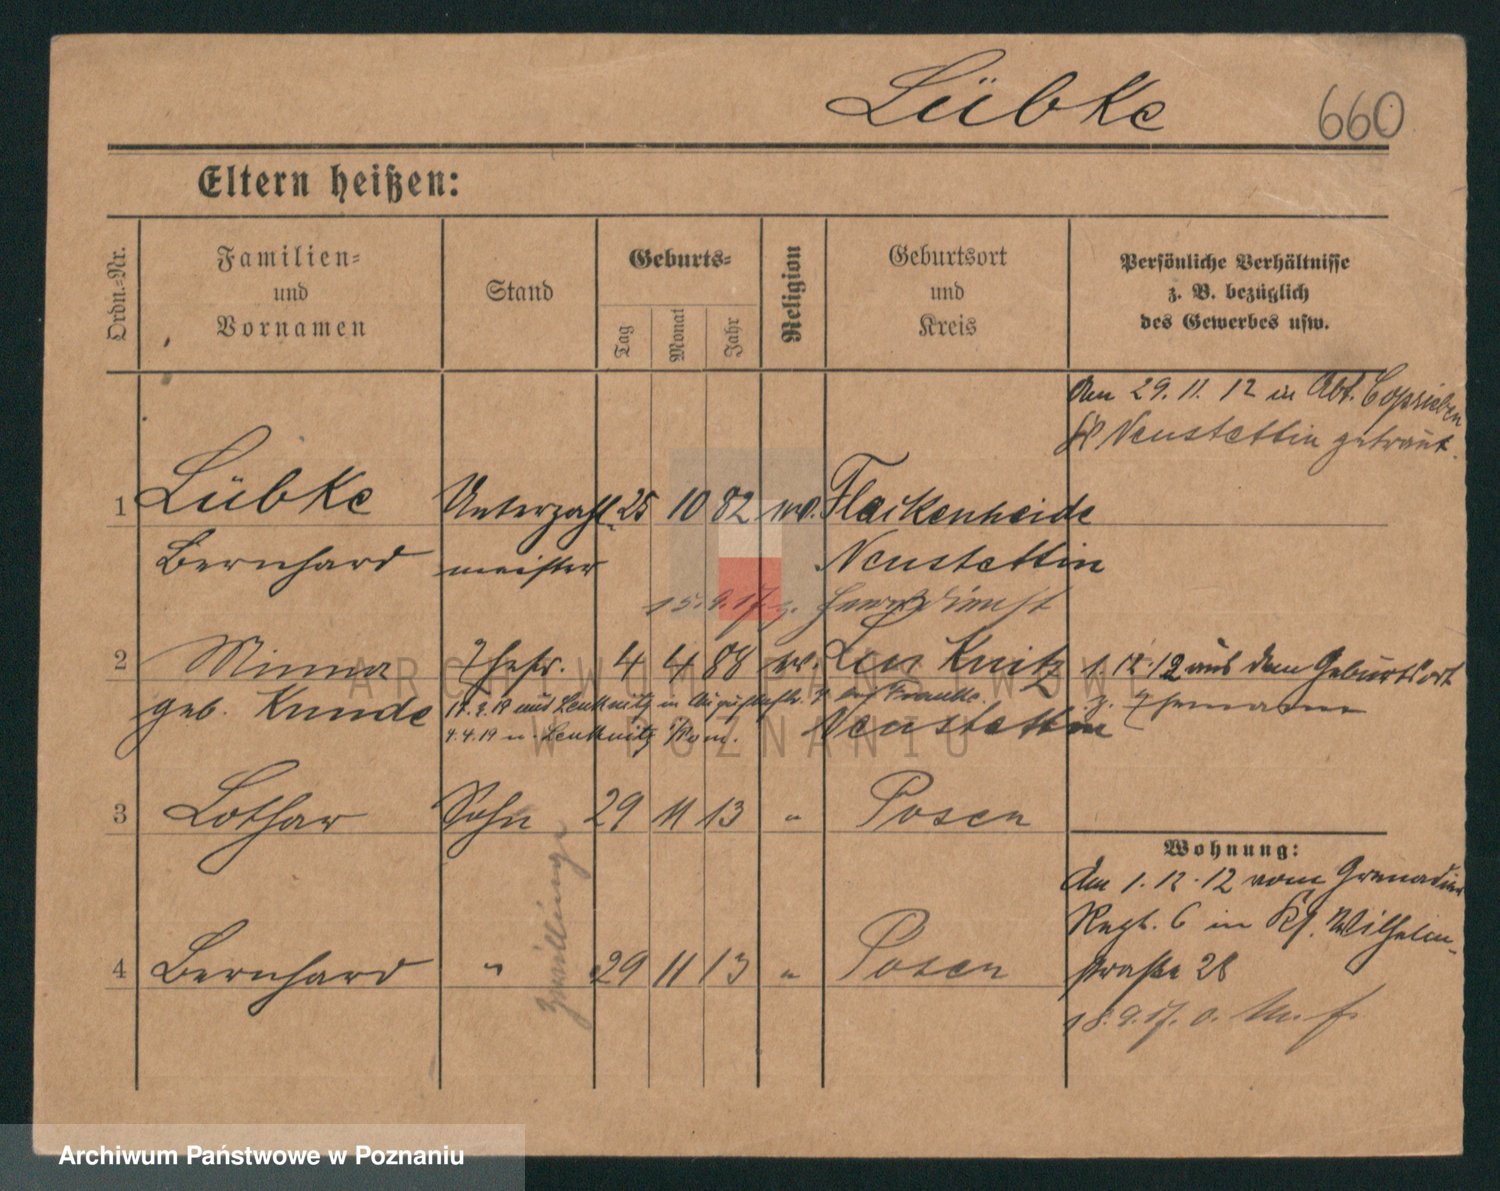 Lübke 660
Eltern heißen:
Ordn.-Nr.
Familien-
und
Vornamen
Stand
Geburts-
Tag
Monat
Jahr
Religion
Geburtsort
und
Kreis
Persönliche Verhältnisse
z. B. bezüglich
des Gewerbes usw.
Am 29.11.12 in Abt. Coprieben
Kr Neustettin getraut.
1 Lübke Unterzahl- 25 10 82 ev. Flackenheide
Bernhard meister Neustettin
15.9.17 z. Heeresdienst
2 Minna Ehefr. 4 4 88 ev. 1.12.12 aus dem Geburtsort
geb. Kunde Neustettin z. Ehemann
3 Lothar Sohn 29 11 13 " Posen
4 Bernhard " 29 11 13 " Posen
Zwillinge
Wohnung:
Am 1.12.12 vom Grenadier
Regt. 6 in Kl. Wilhelm-
straße 28
18.9.17. o.
ARCHIWUM PAŃSTWOWE
W POZNANIU
Archiwum Państwowe w Poznaniu